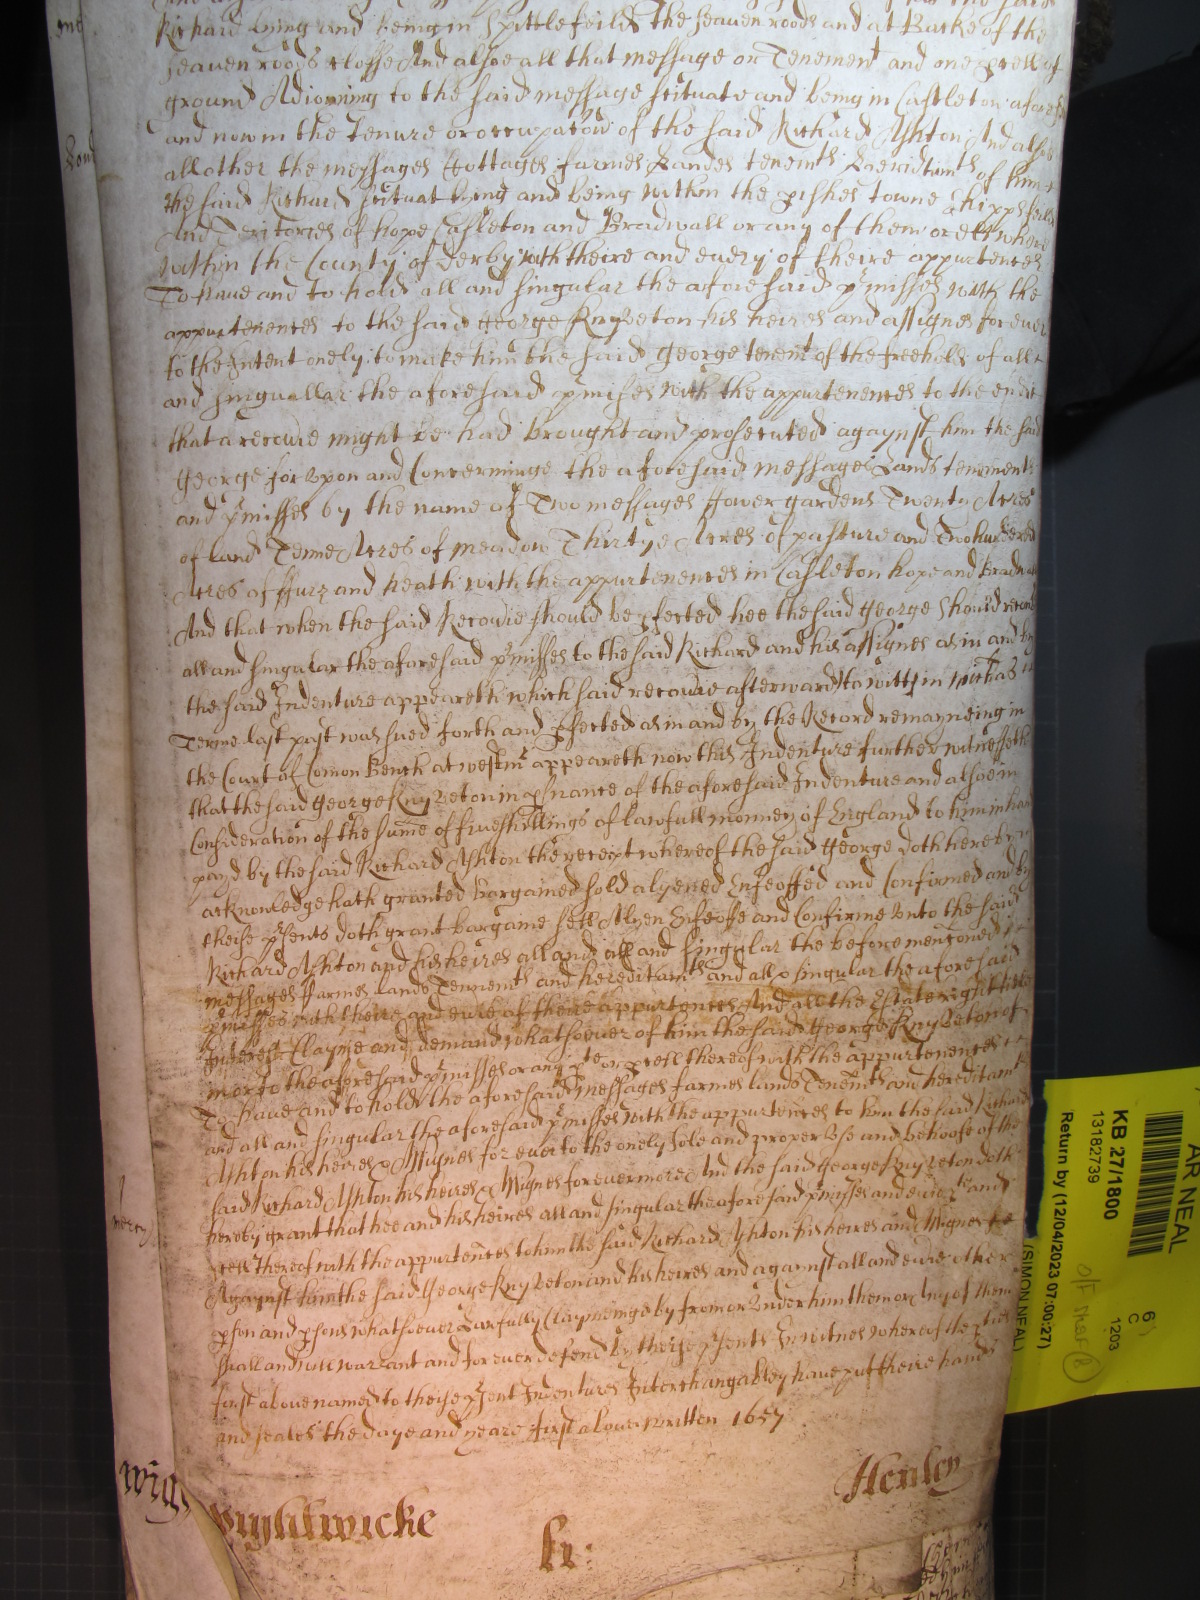 Richard Lying and being in Spittlefeilds the heaven roods and at Backe of the
heaven roods closse And alsoe all that message or Tenemt and one pcell of
ground Adioyning to the said message scituate and being in Castleton aforesd
and now in the Tenure or occupacon of the said Richard Ashton And alsoe
all other the messages Cottages farmes Landes tenemts heredtimts of him
the said Richard scituat lying and being within the pishes towne
And Teritories of hope Casleton and Bradwall or any of them or ells where
within the County of Derby with theire and every of theire appurtences
To have and to hold all and singular the aforesaid pmisses with the
appurtenences to the said George Knyveton his heires and assignes for ever
to the Intent onely to make him the said George tenent of the freehold of all
and singuallar the aforesaid pmises with the appurtenences to the end
that a recovie might be had brought and prosecuted against him the said
George for upon and Concerninge the aforesaid messages Lands tenements
and pmisses by the name of Two messages ffower gardens Twenty Acres
of land Tenne Acres of meadow Thirtye Acres of pasture and Two hundered
Acres of ffurz and heath with the appurtenences in Casleton hope and Bradwall
And that when the said Recovie should be pfected hee the said George should
all and singular the aforesaid pmisses to the said Richard and his assignes as in and by
the said Indenture appeareth which said recovie afterward (to witt) in
Terme last past was sued forth and pfected as in and by the Record remayneing in
the Court of Comon Bench at westmr appeareth now this Indenture further witnesseth
that the said George Knyveton in psuance of the aforesaid Indenture and alsoe in
Consideration of the sume of five shillings of lawfull monney of England to him in hand
payd by the said Richard Ashton the receipt whereof the said George doth hereby
acknowledge hath granted bargained sold alyened Enfeoffed and Confirmed and by
theise psents doth grant bargaine sell Alyen Enfeoffe and Confirme unto the said
Richard Ashton and his heires all and all and singular the before mentoned
messages ffarmes lands Tenements and hereditamts and all & singular the aforesaid
pmisses with theire and evrie of theire appurtences And all the Estate right title
Interest Clayme and demand whatsoever of him the said George Knyveton of
in or to the aforesaid pmisses or any pte or pcell thereof with the appurtenences
To have and to hold the aforesaid messages farmes lands Tenemts and hereditamts
and all and singular the aforesaid pmisses with the appurtences to him the said Richard
Ashton his heires & Assignes for ever to the onely sole and proper Use and behoofe of the
said Richard Ashton his heires & Assignes forevermore And the said George Knyveton doth
hereby grant that hee and his heires all and singular the aforesaid pmisses and evie pte and
pcell thereof with the appurtences to him the said Richard Ashton his heires and Assignes
Against him the said George Knyveton and his heires and against all and evie other
pson and psons whatsoever Lawfully Claymeinge by from or Under him them or Any of them
shall and will warrant and forever defend by theise psents In witnes whereof the pties
first above named to theise psent Indentures Interchangabley have put theire hands
and seales the daye and yeare first above written 1657
Henley
wigh
wicke
fr:
AR NEAL
KB 27/1800
13182739
Return by (12/04/2023 07:00:27)
(SIMON NEAL)
1203
C